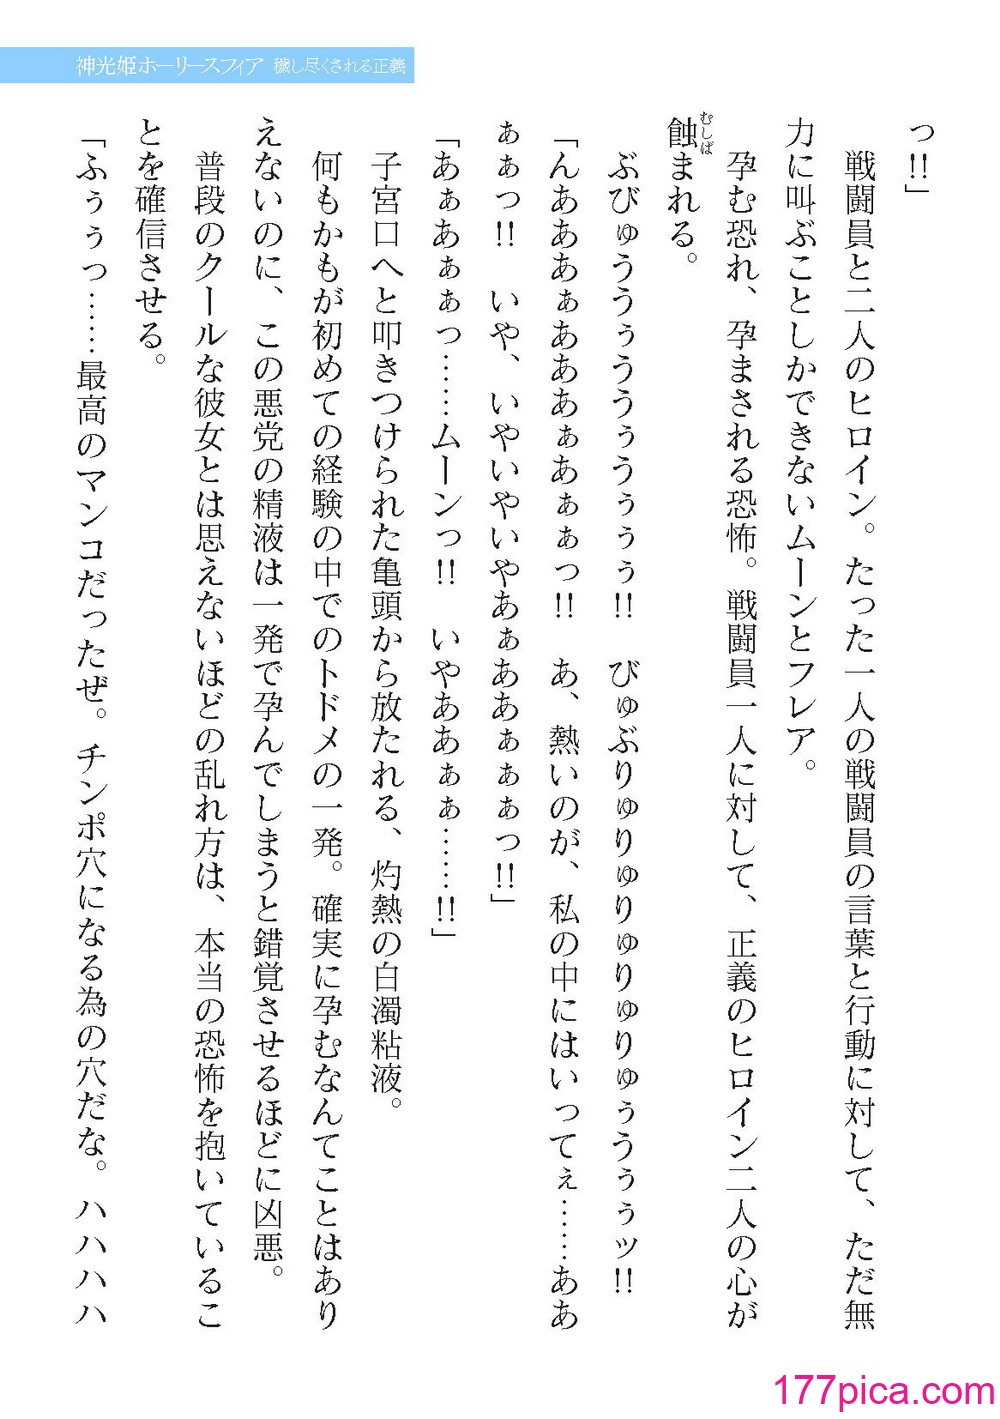 神光姫ホーリースフィア 穢し尽くされる正義
っ!!」
戦闘員と二人のヒロイン。たった一人の戦闘員の言葉と行動に対して、ただ無
力に叫ぶことしかできないムーンとフレア。
孕む恐れ、孕まされる恐怖。戦闘員一人に対して、正義のヒロイン二人の心が
むしば
蝕まれる。
ぶびゅううぅううぅうぅぅ!! びゅぶりゅりゅりゅりゅりゅぅうぅぅッ!!
「んあああぁあああぁあぁぁっ!! あ、熱いのが、私の中にはいってぇ……ああ
ぁぁっ!! いや、いやいやいやあぁああぁぁぁっ!!」
「あぁあぁぁっ……ムーンっ!! いやああぁぁ……!!」
子宮口へと叩きつけられた亀頭から放たれる、灼熱の白濁粘液。
何もかもが初めての経験の中でのトドメの一発。確実に孕むなんてことはあり
えないのに、この悪党の精液は一発で孕んでしまうと錯覚させるほどに凶悪。
普段のクールな彼女とは思えないほどの乱れ方は、本当の恐怖を抱いているこ
とを確信させる。
「ふぅぅっ……最高のマンコだったぜ。チンポ穴になる為の穴だな。ハハハハ
177pica.com